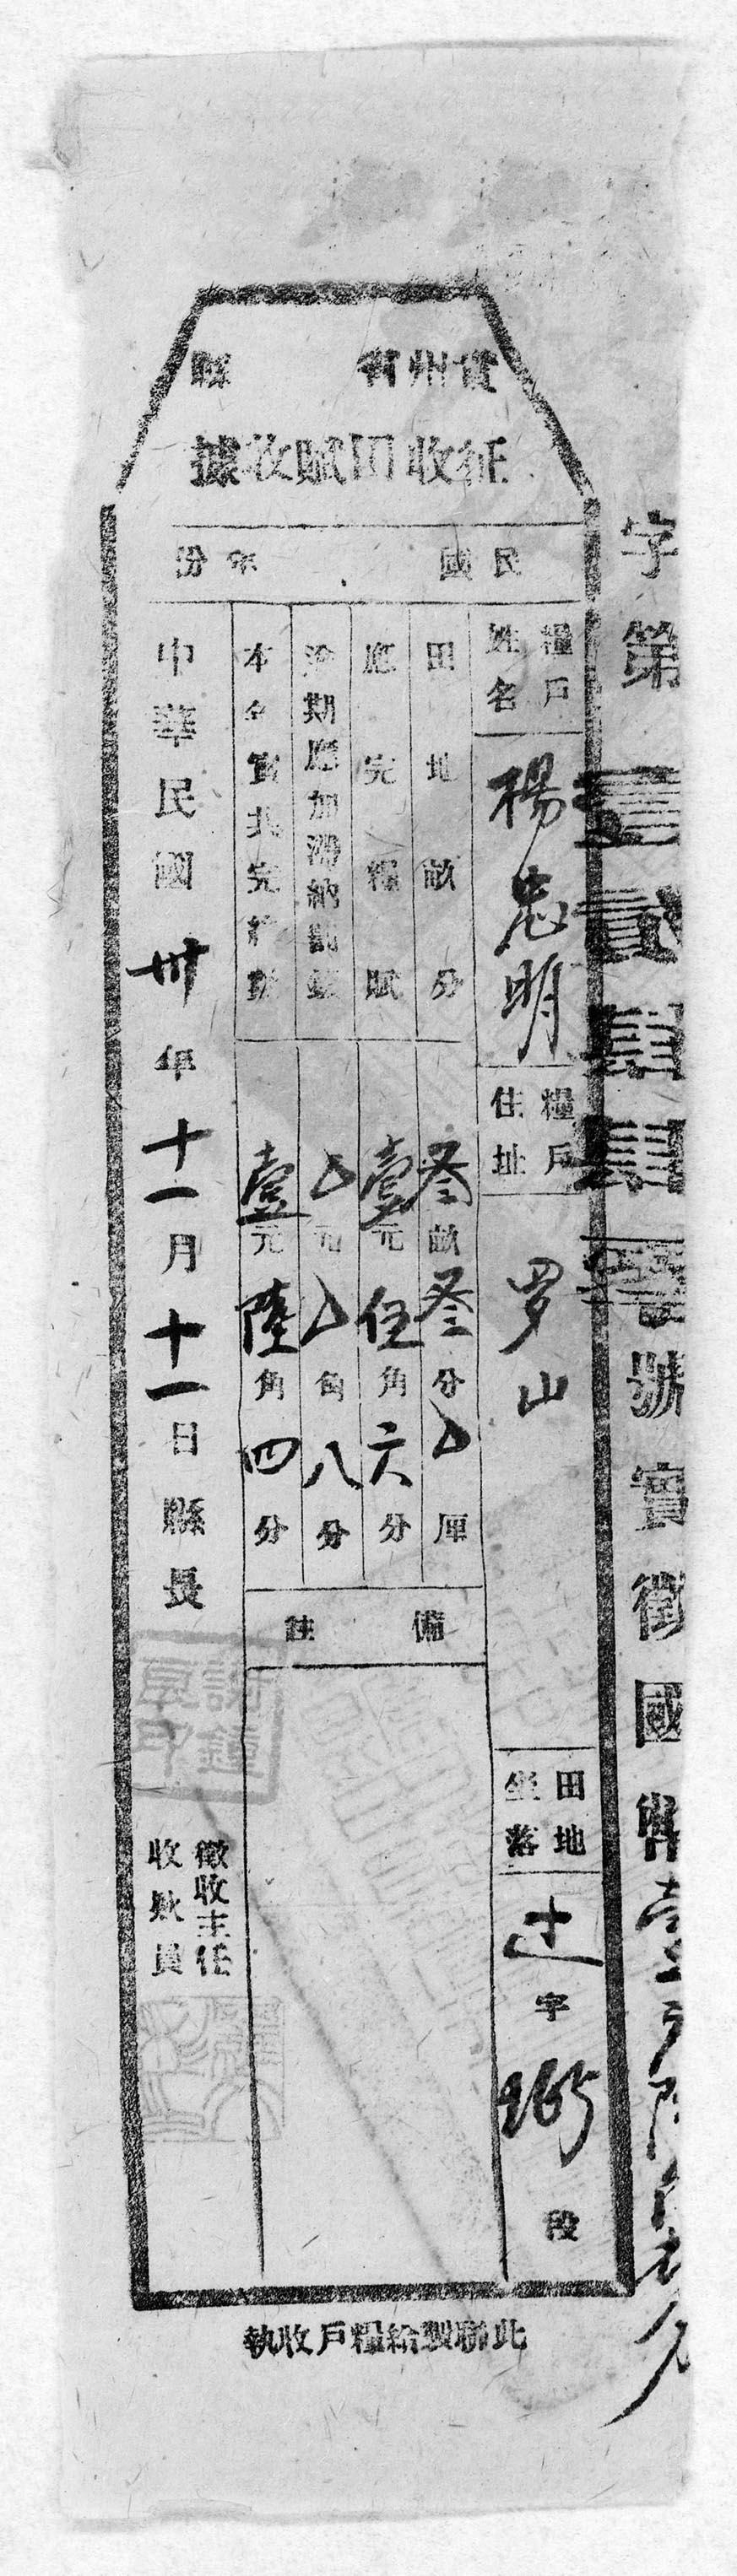 貴州省 縣
征收田賦收據
民國 年份
字第壹貳肆肆壹號實徵國幣壹元陸角肆分
糧戶姓名 楊忠明
糧戶住址 罗山
田地坐落 辻字 265 段
田地畝分 叁畝叁分〇厘
應完糧賦 壹元伍角六分
逾期應加滯納罰款 〇元〇角八分
本名實共完 壹元陸角四分
備註
中華民國卅年十一月十一日縣長
徵收主任
收款員
此聯製給糧戶收執